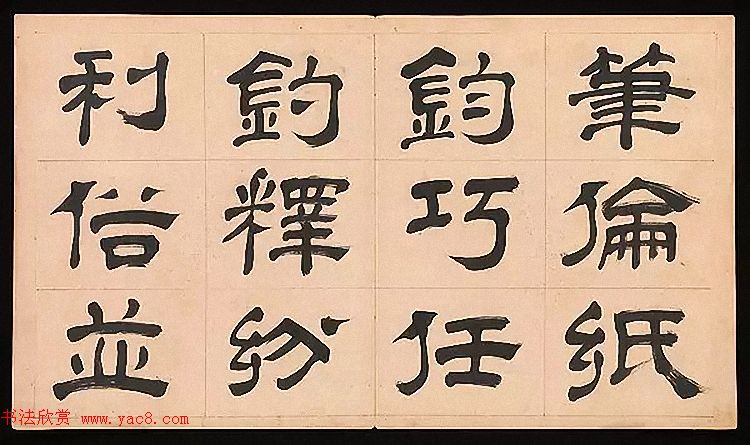 筆倫紙
鈞巧任
釣釋紛
利俗並
书法欣赏 www.yac8.com